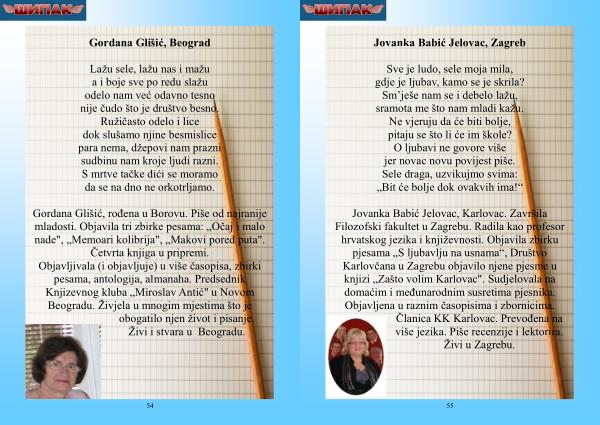 ШИПАК
Gordana Glišić, Beograd
Lažu sele, lažu nas i mažu
a i boje sve po redu slažu
odelo nam već odavno tesno
nije čudo što je društvo besno.
Ružičasto odelo i lice
dok slušamo njine besmislice
para nema, džepovi nam prazni
sudbinu nam kroje ljudi razni.
S mrtve tačke dići se moramo
da se na dno ne orkotrljamo.
Gordana Glišić, rođena u Borovu. Piše od najranije
mladosti. Objavila tri zbirke pesama: „Očaj i malo
nade", „Memoari kolibrija", „Makovi pored puta".
Četvrta knjiga u pripremi.
Objavljivala (i objavljuje) u više časopisa, zbirki
pesama, antologija, almanaha. Predsednik
Knjizevnog kluba „Miroslav Antić" u Novom
Beogradu. Živjela u mnogim mjestima što je
obogatilo njen život i pisanje.
Živi i stvara u Beogradu.
54
ШИПАК
Jovanka Babić Jelovac, Zagreb
Sve je ludo, sele moja mila,
gdje je ljubav, kamo se je skrila?
Sm'ješe nam se i debelo lažu,
sramota me što nam mladi kažu.
Ne vjeruju da će biti bolje,
pitaju se što li će im škole?
O ljubavi ne govore više
jer novac novu povijest piše.
Sele draga, uzvikujmo svima:
„Bit će bolje dok ovakvih ima!"
Jovanka Babić Jelovac, Karlovac. Završila
Filozofski fakultet u Zagrebu. Radila kao profesor
hrvatskog jezika i književnosti. Objavila zbirku
pjesama „S ljubavlju na usnama", Društvo
Karlovčana u Zagrebu objavilo njene pjesme u
knjizi „Zašto volim Karlovac". Sudjelovala na
domaćim i međunarodnim susretima pjesnika.
Objavljena u raznim časopisima i zbornicima.
Članica KK Karlovac. Prevođena na
više jezika. Piše recenzije i lektorira.
Živi u Zagrebu.
55